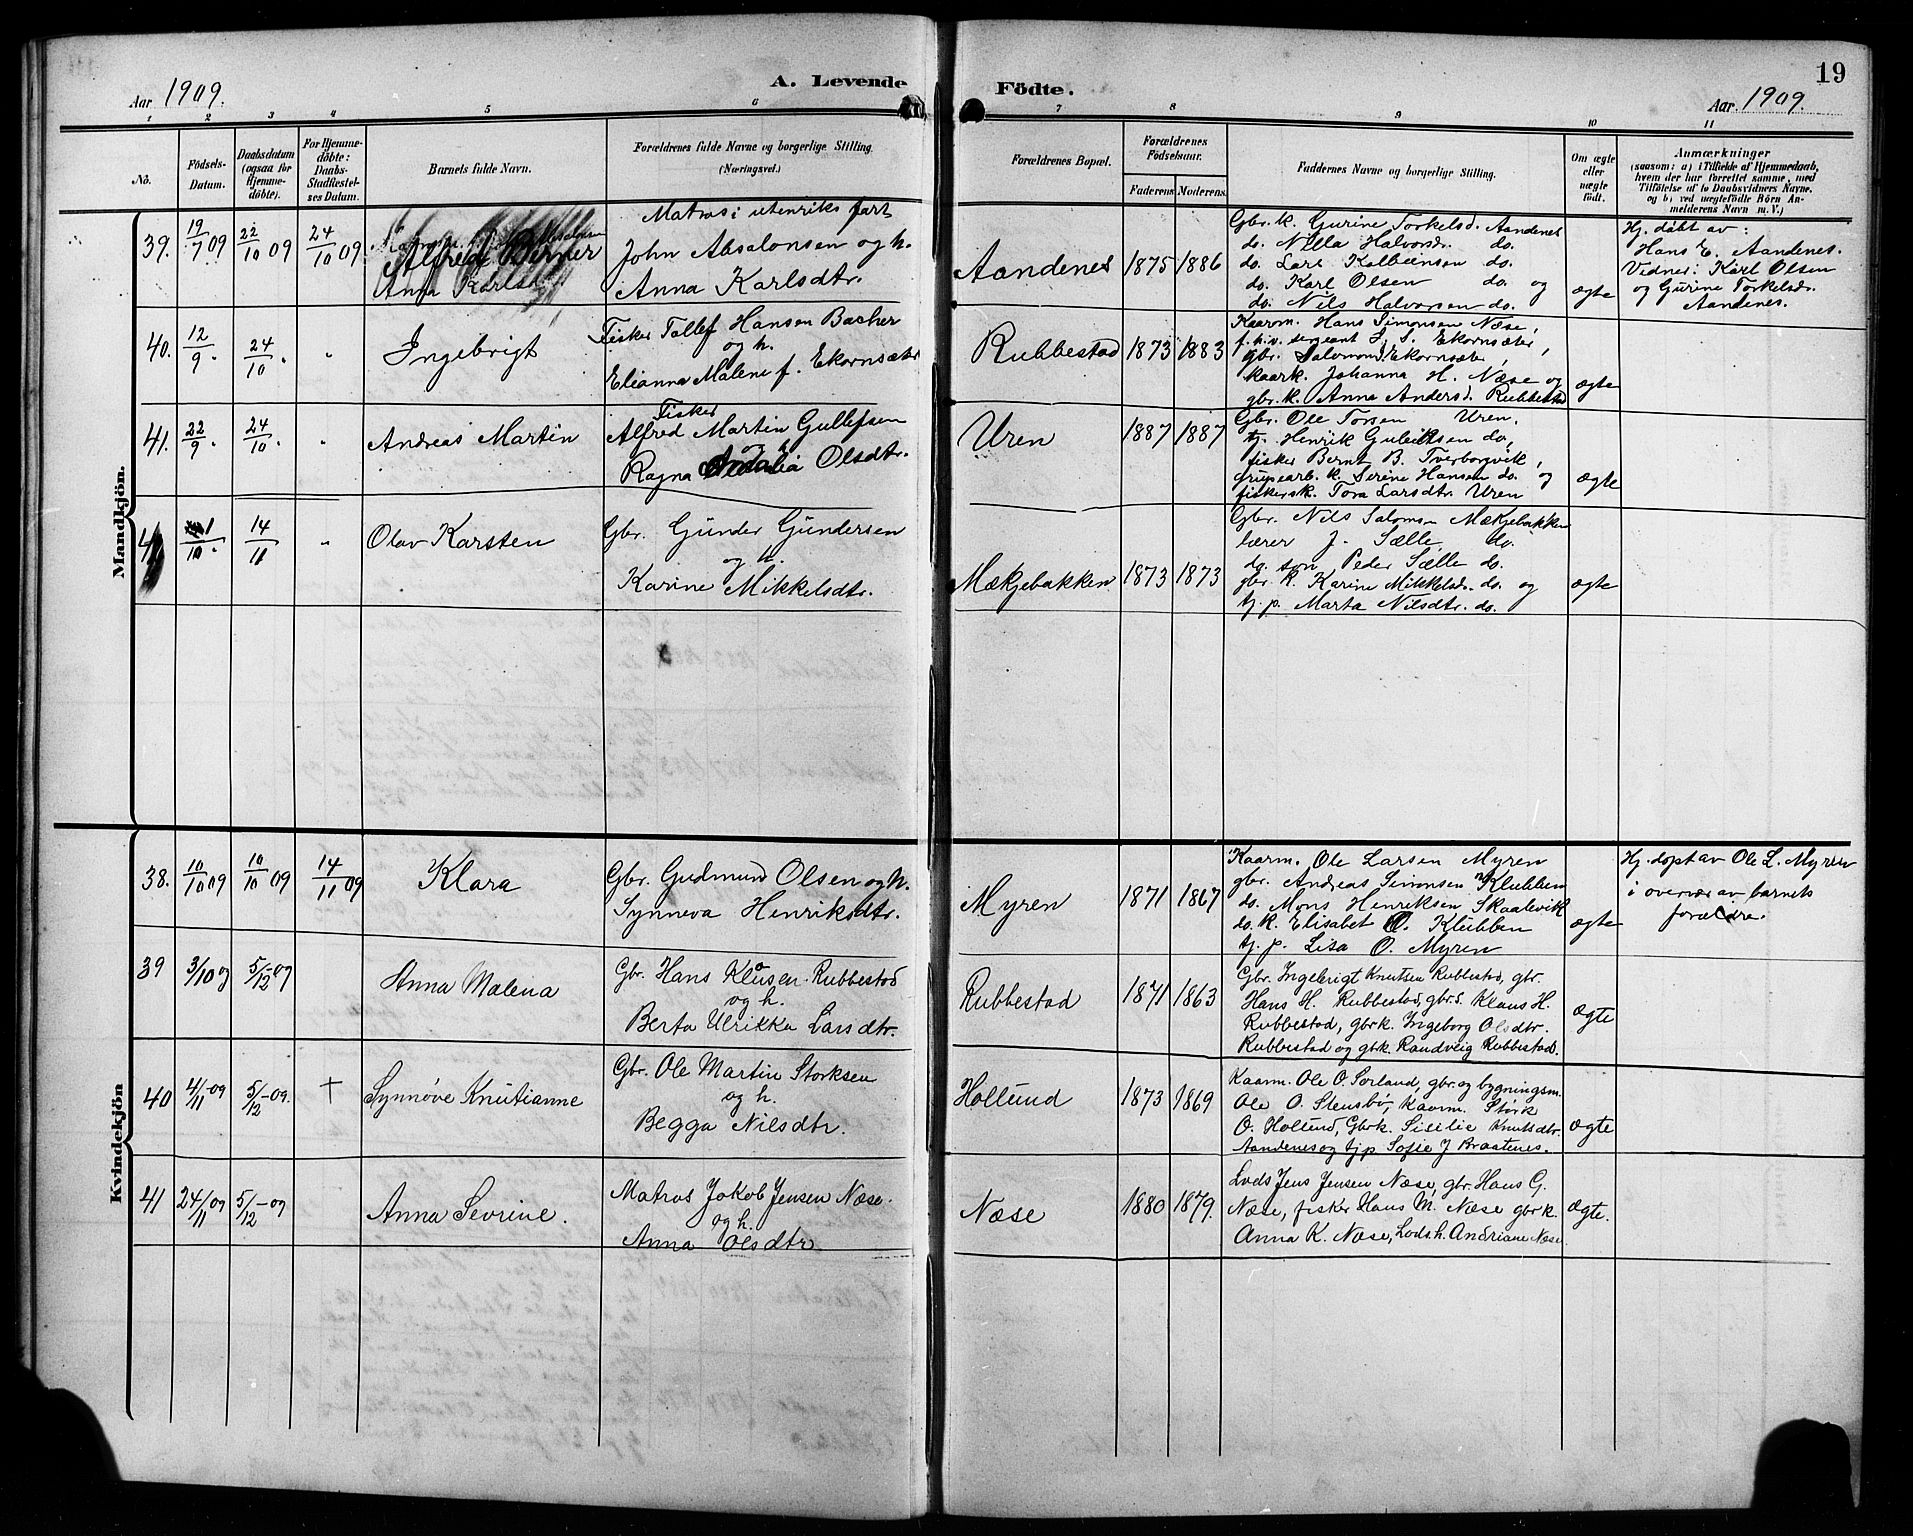 Aar 1909.
A. Levende
Födte.
19
Aar 1909.
1 2 3 4 5 6 7 8 9 10 11
No.
Födsels-
Datum.
Daabsdatum
(ogsaa for
Hjemme-
döbte).
For Hjemme-
döbte:
Daabs-
Stadfæstel-
ses Datum.
Barnets fulde Navn.
Forældrenes fulde Navne og borgerlige Stilling.
(Næringsvei.)
Forældrenes Bopæl.
Forældrenes
Födselsaar.
Faderens
Moderens.
Faddernes Navne og borgerlige Stilling.
Om ægte
eller
uægte
födt.
Anmærkninger
(saasom: a) i Tilfælde af Hjemmedaab,
hvem der har forrettet samme, med
Tilföielse af to Daabsvidners Navne.
og b) ved uægtefödte Börn An-
melderens Navn m. V.)
Mandkjön.
39. 19/7 09 22/10 09 24/10 09
Alfred Berner
Matros i utenriks fart
John Absalonsen og h.
Anna Karlsdtr.
Aandenes 1875 1886
Gbr. k. Gurine Torkelsd. Aandenes
do. Nilla Halvorsdr. do.
do. Lars Kolbeinsen do.
do. Karl Olsen do. og
do. Nils Halvorsen do.
ægte
Hj. döbt av:
Hans E. Aandenes.
Vidner: Karl Olsen
og Gurine Torkelsdr.
Aandenes.
40. 12/9 " 24/10 " "
Ingebrigt
Fisker Tollef Hansen Bacher
og h.
Elianna Malene f. Ekornsæter
Rubbestad 1873 1883
Kaarm. Hans Simonsen Næse,
f.h.v. sergeant J. S. Ekornsæter,
gbr. Salomon Ekornsæter,
kaark. Johanna H. Næse og
gbr. k. Anna Andersd. Rubbestad
ægte
41. 22/9 " 24/10 " "
Andreas Martin
Fisker
Alfred Martin Gullefsen
Ragna Olsdtr.
Uren 1887 1887
Gbr. Ole Torsen Uren.
tj. Henrik Guleiksen do,
fisker Bernt B. Tverborgvik,
grubearb. k. Serine Hansen do. og
fiskersk. Tora Larsdtr. Uren
ægte
1/10 " 14/11 "
Olav Karsten
Gbr. Gunder Gundersen
og h.
Karine Mikkelsdtr.
Mækjebakken 1873 1873
Gbr. Nils Salomsn Mækjebakken
lærer J. Sælle do.
do. søn Peder Sælle do.
gbr. k. Karine Mikkelsd. do. og
tj. p. Marta Nilsdtr. do.
ægte
Kvindekjön
38. 10/10 09 10/10 09 14/11 09
Klara
Gbr. Gudmund Olsen og h.
Synneva Henriksdtr.
Myren 1871 1867
Kaarm. Ole Larsen Myren
gbr. Andreas Simonsen Klubben
do. Mons Henriksen Skaalevik
do. k. Elisabet O. Klubben
tj. p. Lisa O. Myren
ægte
Hj. döpt av Ole L. Myren
i overvær av barnets
forældre.
39 3/10 09 5/12 09
Anna Malena
Gbr. Hans Klausen Rubbestad
og h.
Berta Ulrikka Larsdtr.
Rubbestad 1871 1863
Gbr. Ingebrigt Knutsen Rubbestad, gbr.
Hans H. Rubbestad, gbr.s. Klaus H.
Rubbestad, gbrk. Ingeborg Olsdtr.
Rubbestad og gbk. Randveig Rubbestad.
ægte
40 4/11-09 5/12-09. +
Synnøve Knutianne
Gbr. Ole Martin Storksen
og h.
Begga Nilsdtr.
Hollund 1873 1869
Kaarm. Ole O. Sorland, gbr. og bygningsm.
Ole O. Stensbø, Kaarm. Størk
O. Hollund, Gbrk. Siselie Knutsdtr.
Aandenes og tjp Sofie J Braatenes.
ægte
41 24/11 09 5/12-09
Anna Sevrine.
Matros Jakob Jensen Næse.
og h.
Anna Olsdtr
Næse 1880 1879.
Lods Jens Jensen Næse, gbr. Hans G.
Næse, fisker Hans M. Næse gbr k.
Anna K. Næse, Lods.h. Andriane Næse.
ægte.